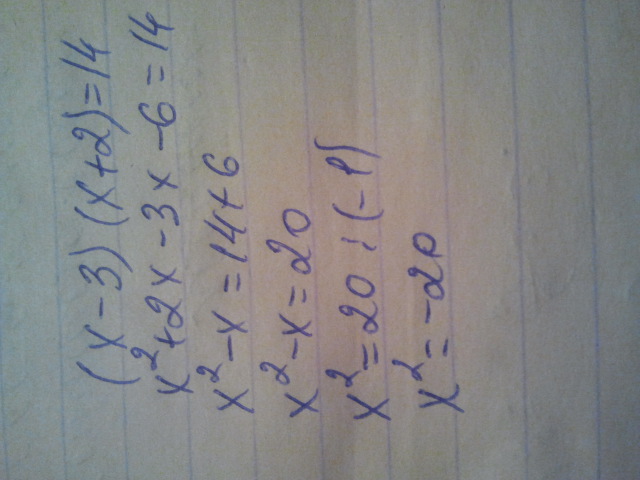 (x-3)(x+2)=14
x²+2x-3x-6=14
x²-x=14+6
x²-x=20
x²=20:(-1)
x²=-20